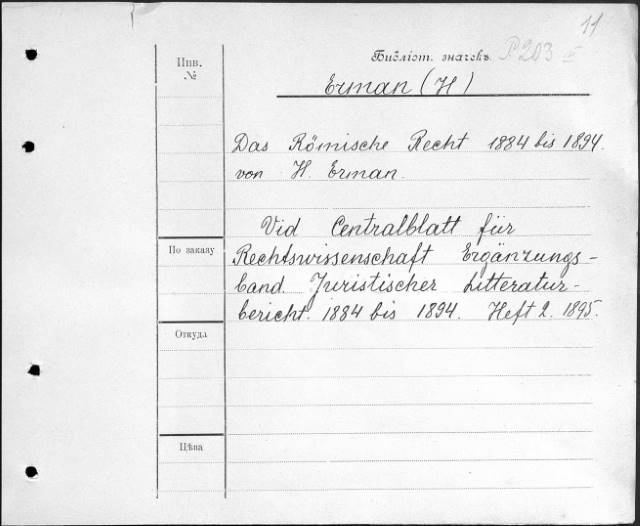 11
Инв.
№
Библіот. значекъ P 203
Erman (H)
Das Römische Recht 1884 bis 1894.
von H. Erman.
Vid Centralblatt für
По заказу
Rechtswissenschaft Ergänzungs-
band. Juristischer Litteratur-
bericht. 1884 bis 1894. Heft 2. 1895.
Откуда
Цѣва